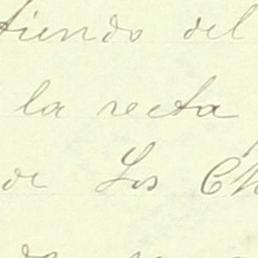 tiendo del
la recta
de Los Ch